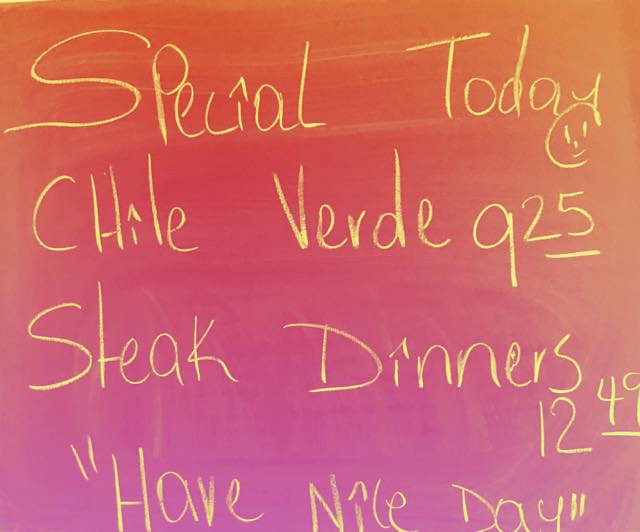 Special Today
CHile Verde 925
Steak Dinners
12 49
"Have Nice Day"